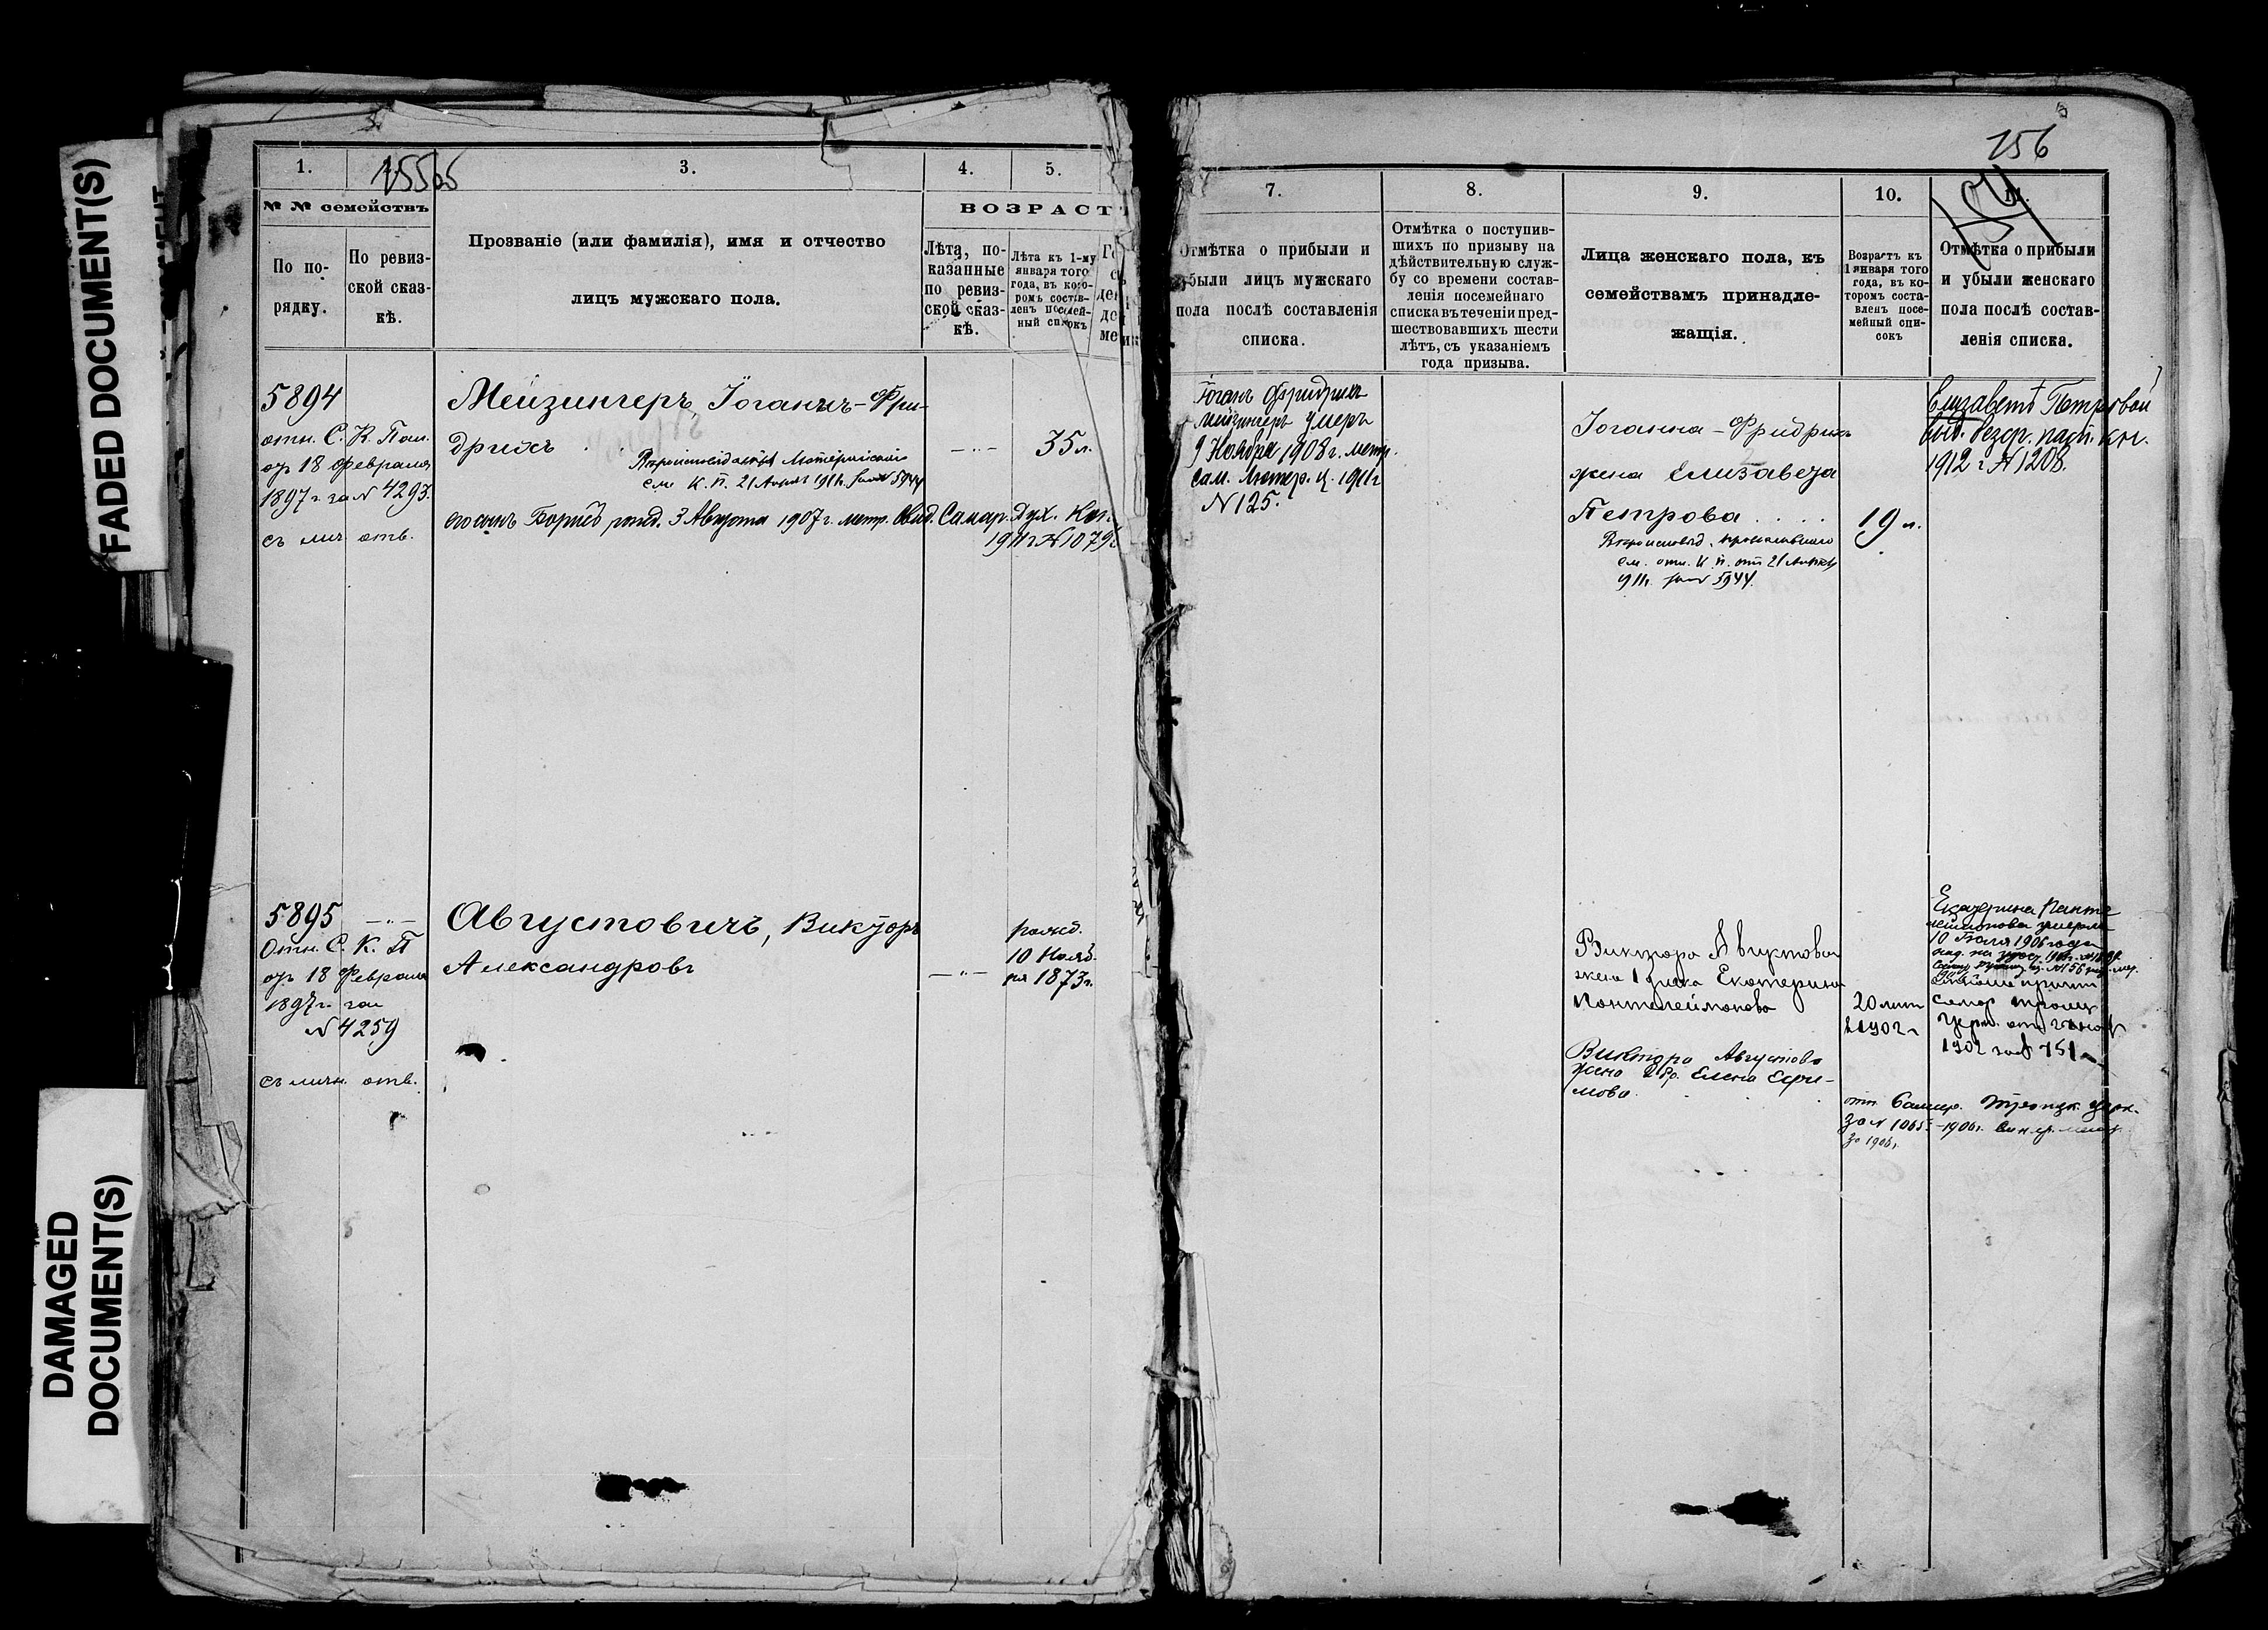 FADED DOCUMENT(S)
DAMAGED
DOCUMENT(S)
1.
3.
4.
5.
№ № семействъ
По по-
рядку.
По ревиз-
ской сказ-
кѣ.
Прозваніе (или фамилія), имя и отчество
лицъ мужскаго пола.
ВОЗРАСТ
Лѣта, по-
казанные
по ревиз-
ской сказ-
кѣ.
Лѣта къ 1-му
января того
года, въ кото-
ромъ состав-
ленъ посемей-
ный списокъ
5894
отн. С. К. Пал.
отъ 18 Февраля
1897 г. за № 4293.
съ лич. отв.
Мейзингеръ, Іоганнъ-Фри-
дрихъ
35 л.
см. К. П. 21 1911г. за № 5944
его сынъ Борисъ рожд. 3 Августа 1907 г. метр. Свид. Самар. Дух. Кон.
1911 г. № 1079
5895
Отн. С. К. П
отъ 18 Февраля
1897 г. за
№ 4259
съ личн. отв.
Августовичъ, Викторъ
Александровъ
рожд.
10 Нояб-
ря 1873 г.
156
7.
8.
9.
10.
11.
Отмѣтка о прибыли и
убыли лицъ мужскаго
пола послѣ составленія
списка.
Отмѣтка о поступив-
шихъ по призыву на
дѣйствительную служ-
бу со времени состав-
ленія посемейнаго
списка въ теченіи пред-
шествовавшихъ шести
лѣтъ, съ указаніемъ
года призыва.
Лица женскаго пола, къ
семействамъ принадле-
жащія.
Возрастъ къ
1 января того
года, въ ко-
торомъ соста-
вленъ посе-
мейный спи-
сокъ
Отмѣтка о прибыли
и убыли женскаго
пола послѣ состав-
ленія списка.
Іоганъ Фридрихъ
Мейзингеръ умеръ
9 Ноября 1908 г. метр.
Сам. Лютер. ц. 1911 г
№ 125.
Іоганна-Фридриха
жена Елизавета
Петрова
19 л.
см. отн. К. П. отъ 21
911г. за № 5944.
Елизаветѣ Петровой
выд. кн.
1912 г. № 1208.
Виктора
жена 1 брака Екатерина
Пантелеймонова
20 лѣтъ
в 1902 г
Екатерина Панте
леймонова умерла
10 Іюля 1906 года
Самар
1902 за № 751
Виктора Августова
жена 2 бр. Елена Ефи-
мова
отн. Самар. Троицк. церк.
за № 1065 - 1906 г.
за 1906 г.